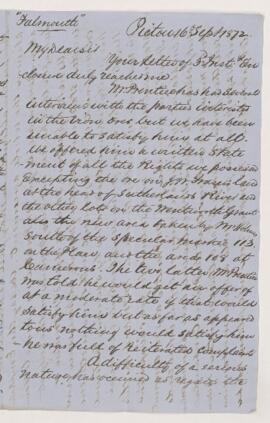 "Falmouth"
Pictou 16 Sept 1872
My Dear Sir
Your letter of 3 Inst. En
closed duly reached me
Mr Prentice has had several
interviews with the parties interests
in the Iron Ores but we have been
unable to satisfy him at all.
We offered him a written State
ment of all the Rights we possessed
Excepting the one on J.W. Frasers land
at the Head of Sutherlands River and
the other lots on the Wentworth Grant
also the new area taken by
South of the Specular marked 113
on the Plan, and the 108 at
The two latter Mr Prentice
was told he would get an offer of
at a moderate rate if that would
satisfy him but as far as appeared
to us nothing would satisfy him
he was full of reiterated complaints
A difficulty of a serious
nature has occurred as regards the